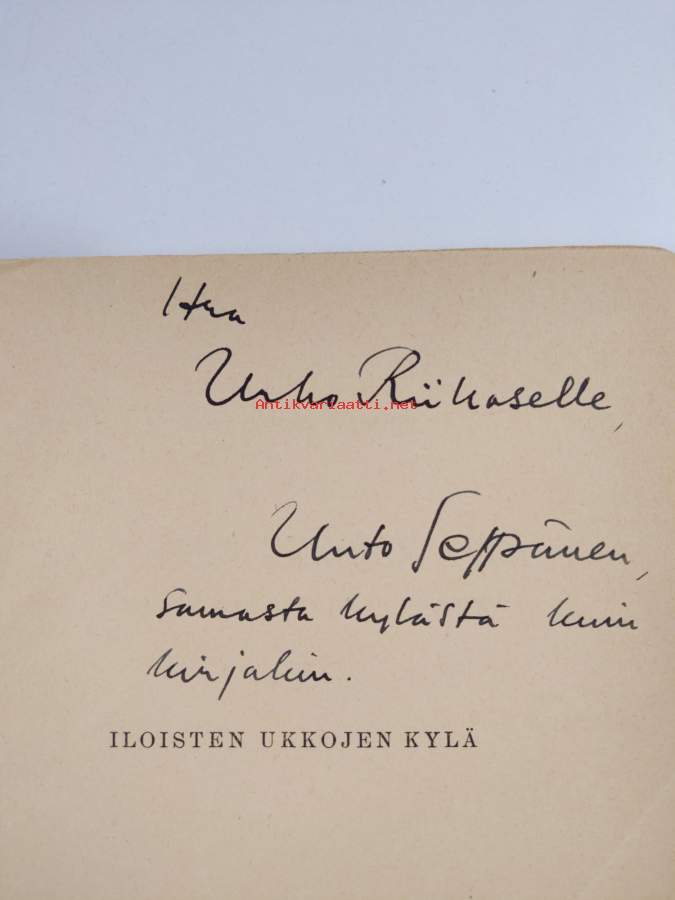 Hra
Urho Riikoselle,
Antikvariaatti.net
Unto Seppänen,
samasta kylästä kuin
kirjakin.
ILOISTEN UKKOJEN KYLÄ